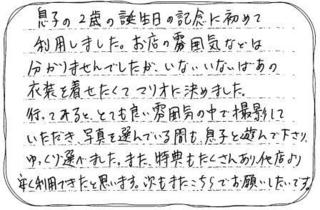 息子の2歳の誕生日の記念に初めて
利用しました。お店の雰囲気などは
分かりませんでしたが、いないいないばあの
衣装を着せたくてマリオに決めました。
行ってみると、とても良い雰囲気の中で撮影して
いただき、写真を選んでいる間も、息子と遊んで下さり、
ゆっくり選べました。また、特典もたくさんあり他店より
安く利用できたと思います。次もまたこちらでお願いしたいです。